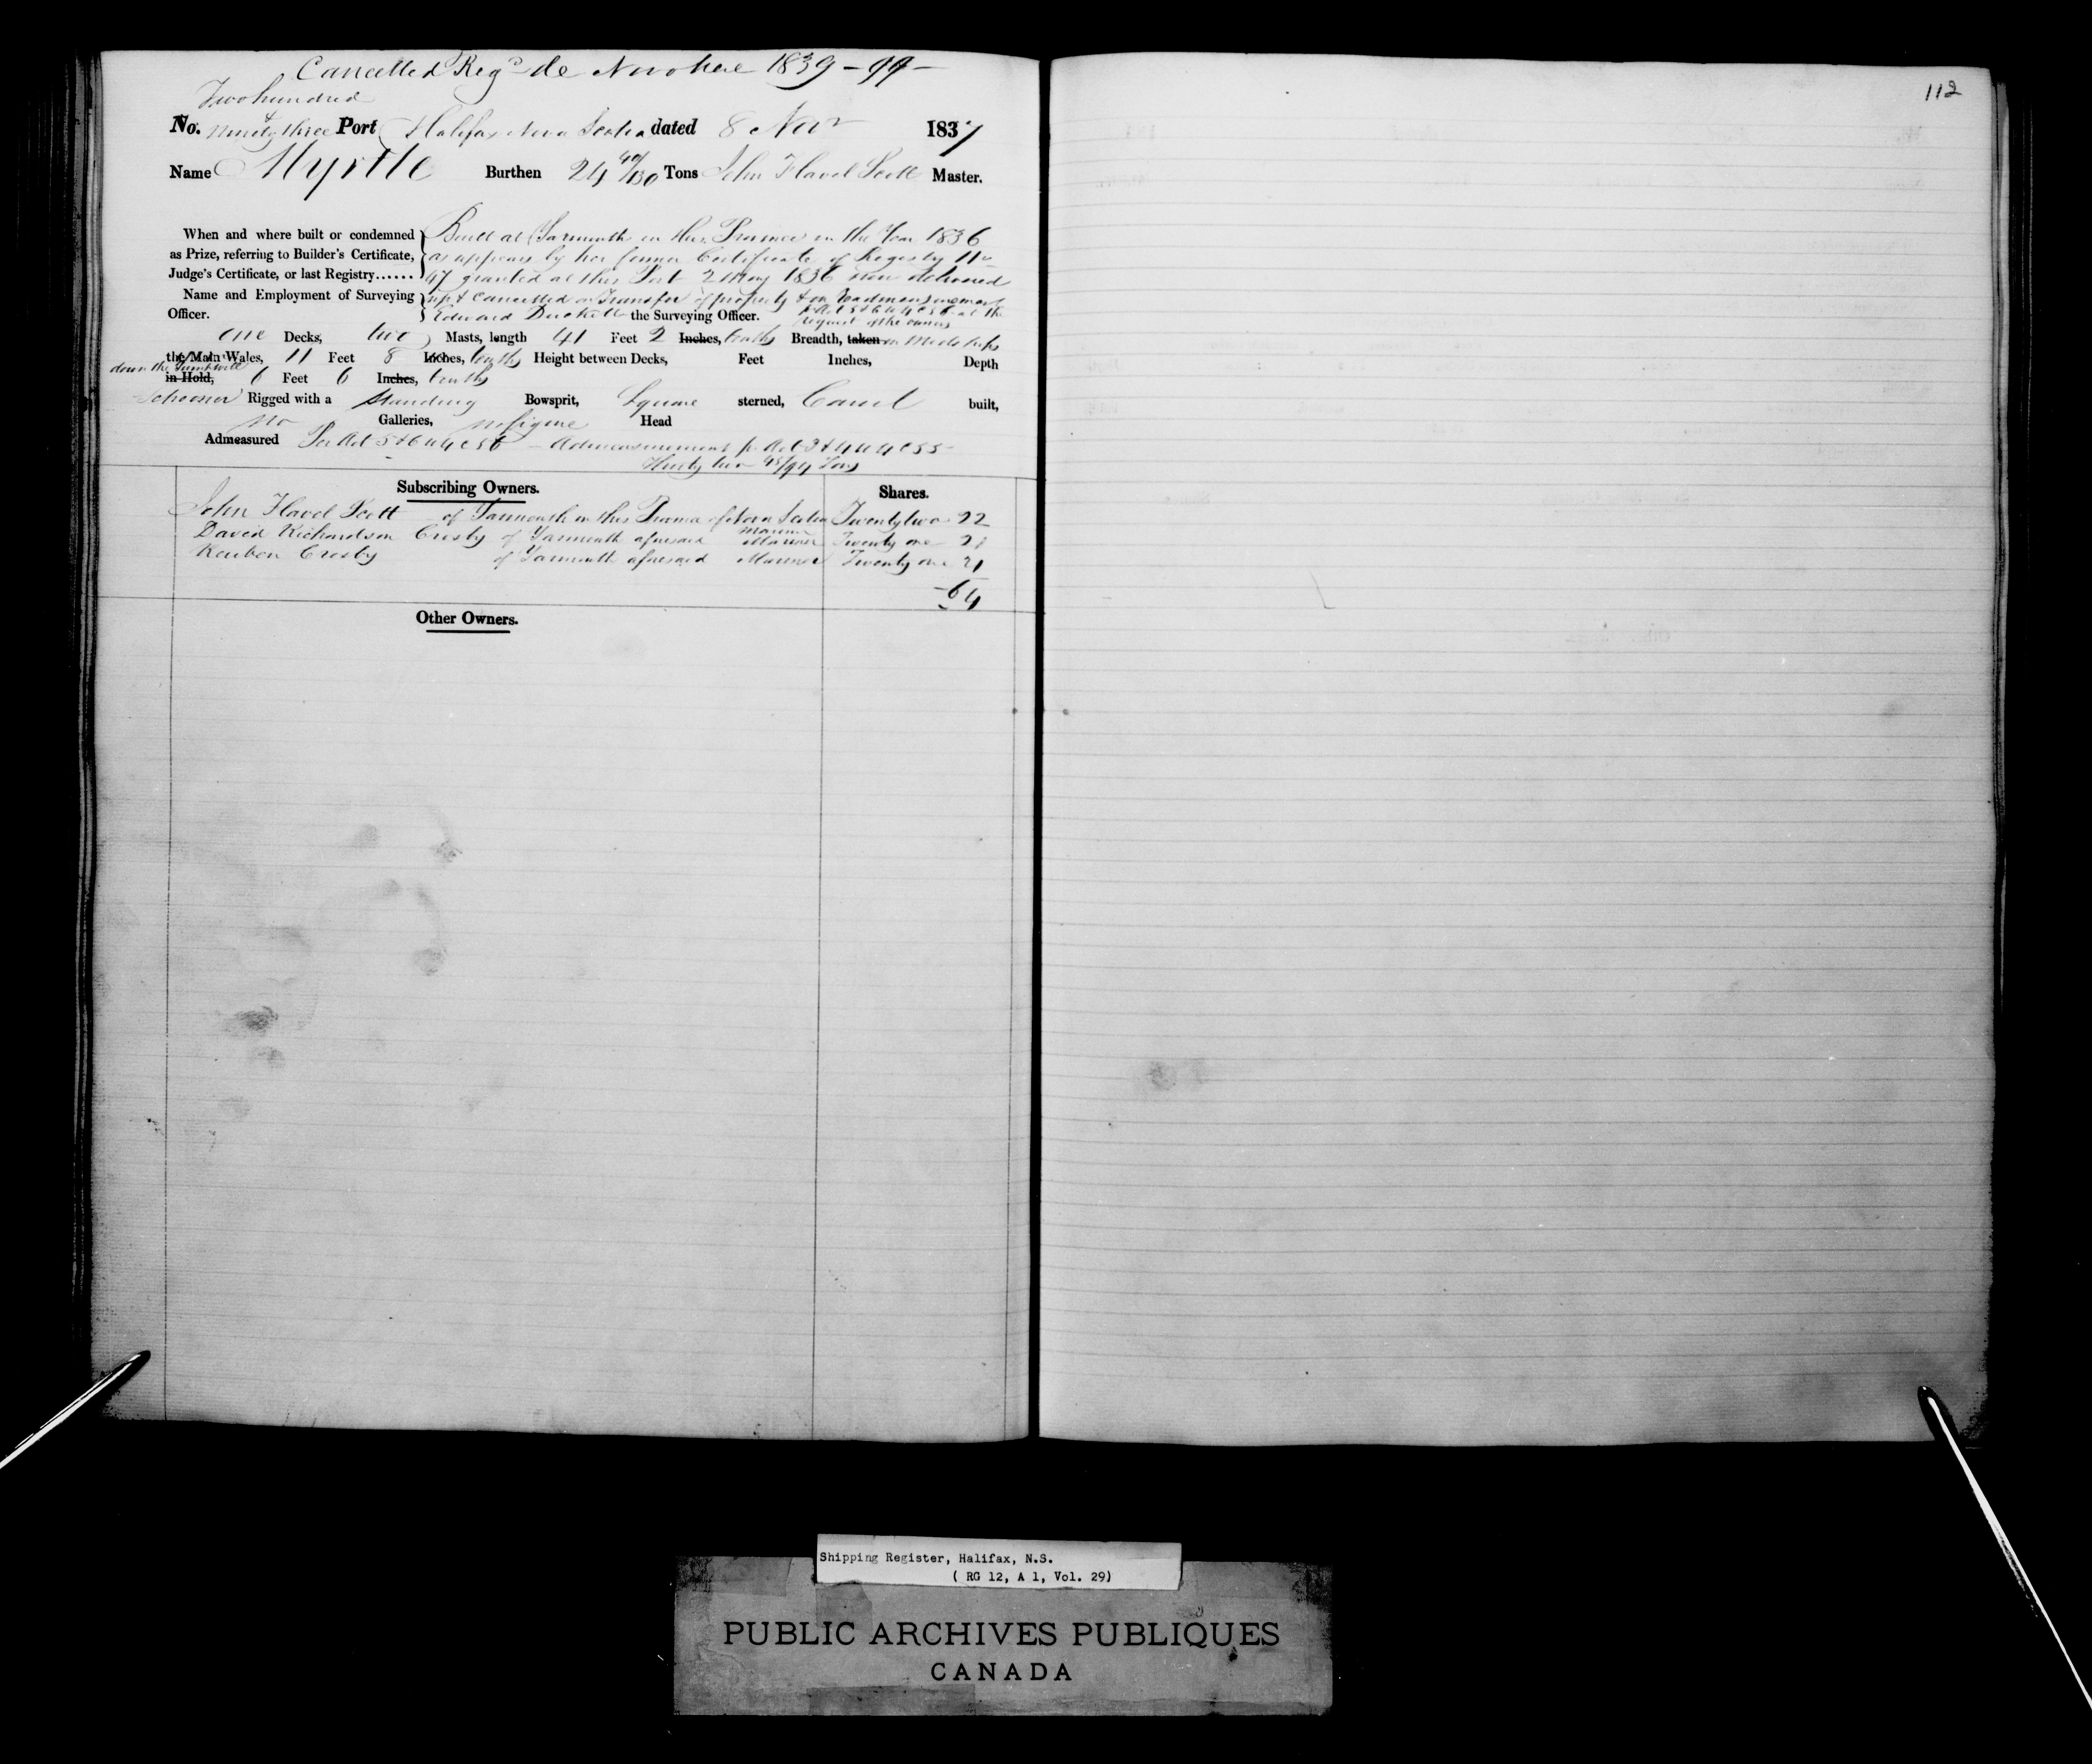 Cancelled Reg.d de Novo here 1839 - 99 -
Two hundred
No. & ninety three Port Halifax Nova Scotia dated 8 Nov 1837
Name Myrtle Burthen 24 40/130 Tons John Flavel Scott Master.
When and where built or condemned as Prize, referring to Builder's Certificate, Judge's Certificate, or last Registry......
Built at Yarmouth in this Province in the Year 1836
as appears by her former Certificate of Registry No
47 granted at this Port 2 May 1836 now delivered
up & Cancelled on Transfer of property & on Readmeasurement
p Act 5 & 6 W 4 C 56 at the
request of the owners
Name and Employment of Surveying Officer.
Edward Duckett the Surveying Officer.
one Decks, two Masts, length 41 Feet 2 Inches, tenths Breadth, taken in Midships
the Main Wales, 11 Feet 8 Inches, tenths Height between Decks, Feet Inches, Depth
down the
in Hold, 6 Feet 6 Inches, tenths
Schooner Rigged with a Standing Bowsprit, Square sterned, Carvel built,
no Galleries, no figure Head
Admeasured Per Act 5 & 6 W 4 C 56 - Admeasurement p Act 3 & 4 W 4 C 55 -
Thirty two 45/94 Tons
Subscribing Owners. Shares.
John Flavel Scott of Yarmouth in this Province of Nova Scotia Twenty two 22
Mariner
David Richardson Crosby of Yarmouth aforesaid Mariner Twenty one 21
Reuben Crosby of Yarmouth aforesaid Mariner Twenty one 21
64
Other Owners.
112
Shipping Register, Halifax, N.S.
( RG 12, A 1, Vol. 29)
PUBLIC ARCHIVES PUBLIQUES
CANADA